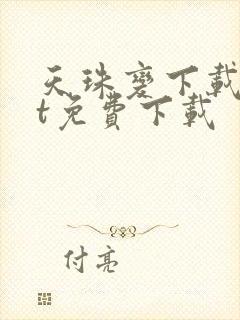 天珠變下載
t免費下載
付亮